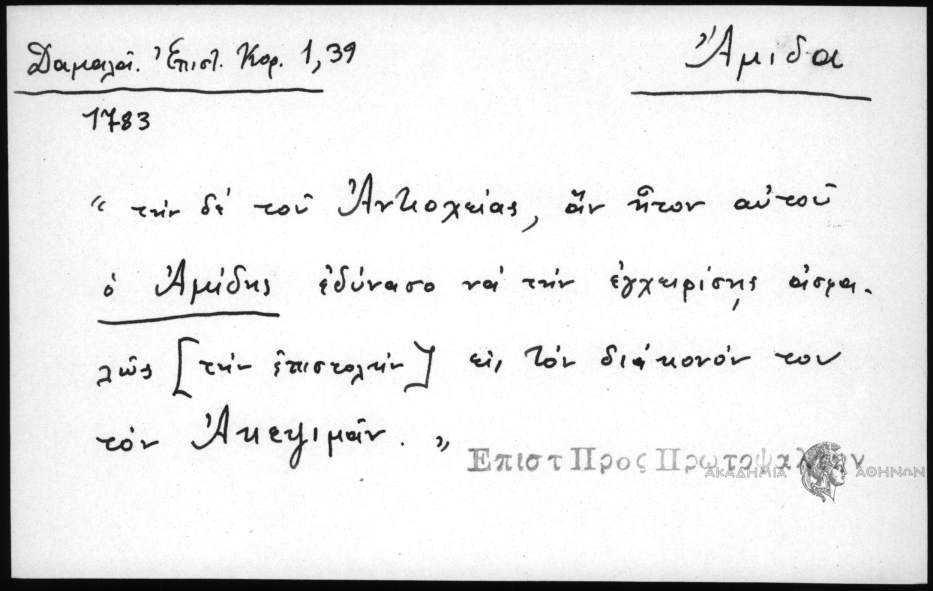 Δαμαλᾶ. Ἐπιστ. Κορ. 1,39
Ἄμιδα
1783
“ τὴν δὲ τοῦ Ἀντιοχείας, ἂν ἦτον αὐτοῦ
ὁ Ἀμίδης ἐδύνασο νὰ τὴν ἐγχειρίσῃς ἀσφα-
λῶς [τὴν ἐπιστολὴν] εἰς τὸν διάκονόν του
τὸν Ἀκεψιμᾶν. ”
Επιστ Προς Πρωτοψαλτην
ΑΚΑΔΗΜΙΑ ΑΘΗΝΩΝ